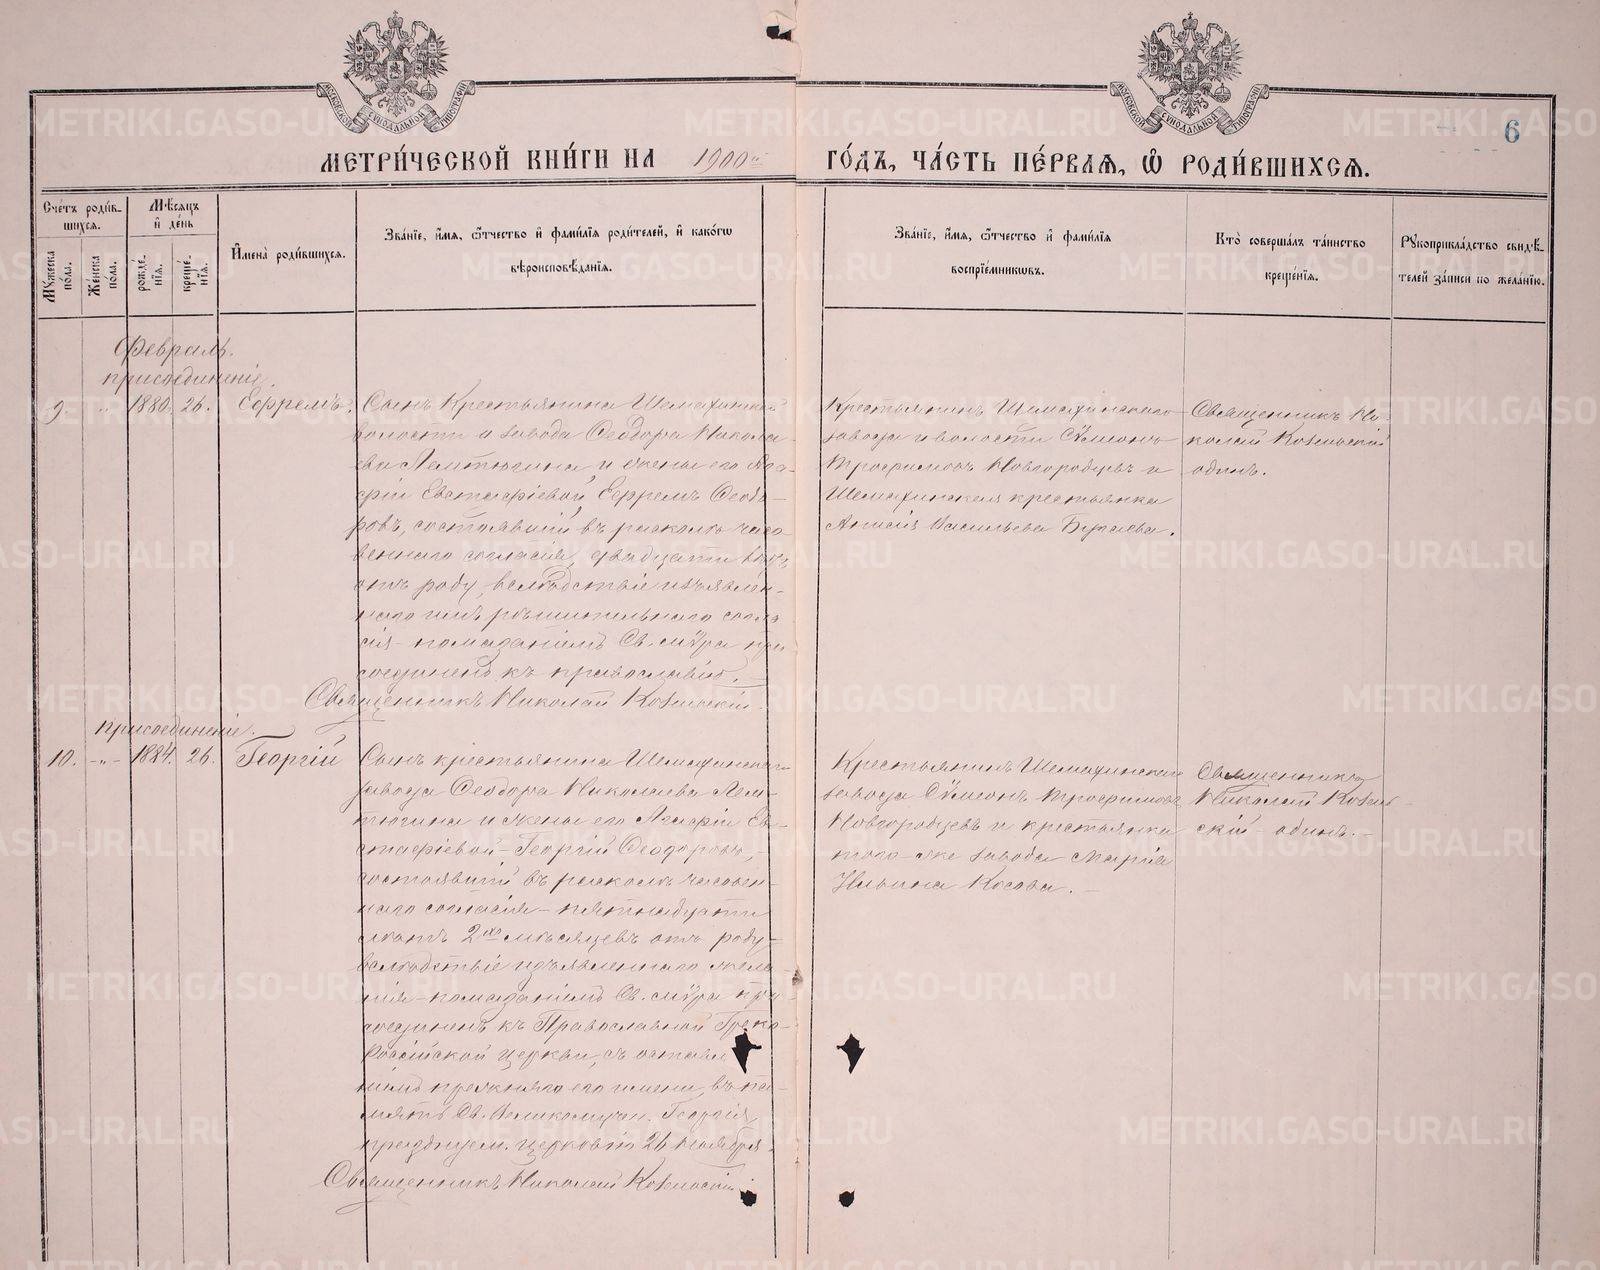 6
МЕТРИ́ЧЕСКОЙ КНИ́ГИ НА 1900й ГО́ДЪ, ЧА́СТЬ ПЕ́РВАѦ, Ѡ҆ РОДИ́ВШИХСѦ.
Сче́тъ роди́в-
шихсѧ.
Мꙋ́жеска по́ла.
Же́нска по́ла.
Мѣ́сѧцъ
и҆ де́нь
рожде́-
нїѧ.
креще́-
нїѧ.
И҆мена̀ роди́вшихсѧ.
Зва́нїе, и҆́мѧ, ѻ҆́тчество и҆ фами́лїѧ роди́телей, и҆ како́гѡ
вѣроисповѣ́данїѧ.
Зва́нїе, и҆́мѧ, ѻ҆́тчество и҆ фами́лїѧ
воспрїе́мникѡвъ.
Кто̀ соверша́лъ та́инство
креще́нїѧ.
Рꙋкоприкла́дство свидѣ́-
телей за́писи по жела́нїю.
Февраль.
присоединеніе.
9. „ 1880. 26. Ефремъ.
Сынъ Крестьянина Шемахинской
волости и завода Ѳеодора Никола-
ева Лемтюгина и жены его Ага-
фіи Евстафіевой, Ефремъ Ѳеодо-
ровъ, состоявшій въ расколѣ часо-
веннаго согласія, двадцати
отъ роду, вслѣдствіе изъявлен-
наго имъ рѣшительнаго согла
сія - помазаніемъ Св. мѵра при
соединенъ къ православію.
Священникъ Николай
Крестьянинъ Шемахинскаго
завода и волости Сѵмеонъ
Трофимовъ Новгородцевъ и
Шемахинская крестьянка
Анисія Васильева
Священникъ Ни-
колай
одинъ.
присоединеніе.
10. -„- 1884. 26. Георгій
Сынъ крестьянина Шемахинскаго
завода Ѳеодора Николаева Лем-
тюгина и жены его Агафіи Ев-
стафіевой - Георгій Ѳеодоровъ, -
состоявшій въ расколѣ часовен-
наго согласія - пятнадцати
лѣтъ 2хъ мѣсяцевъ отъ роду -
вслѣдствіе изъявленнаго жела-
нія - помазаніемъ Св. мѵра при-
соединенъ къ Православной Греко-
Россійской церкви, съ оставле
ніемъ прежняго его имени, въ па-
мять Св. Великомучен. Георгія,
празднуем. церковію 26 Ноября.
Священникъ Николай
Крестьянинъ Шемахинскаго
завода Сѵмеонъ Трофимовъ
Новгородцевъ и крестьянка
того-же завода Марія
Ильина Косова. -
Священникъ
Николай
скій - одинъ. -
METRIKI.GASO-URAL.RU